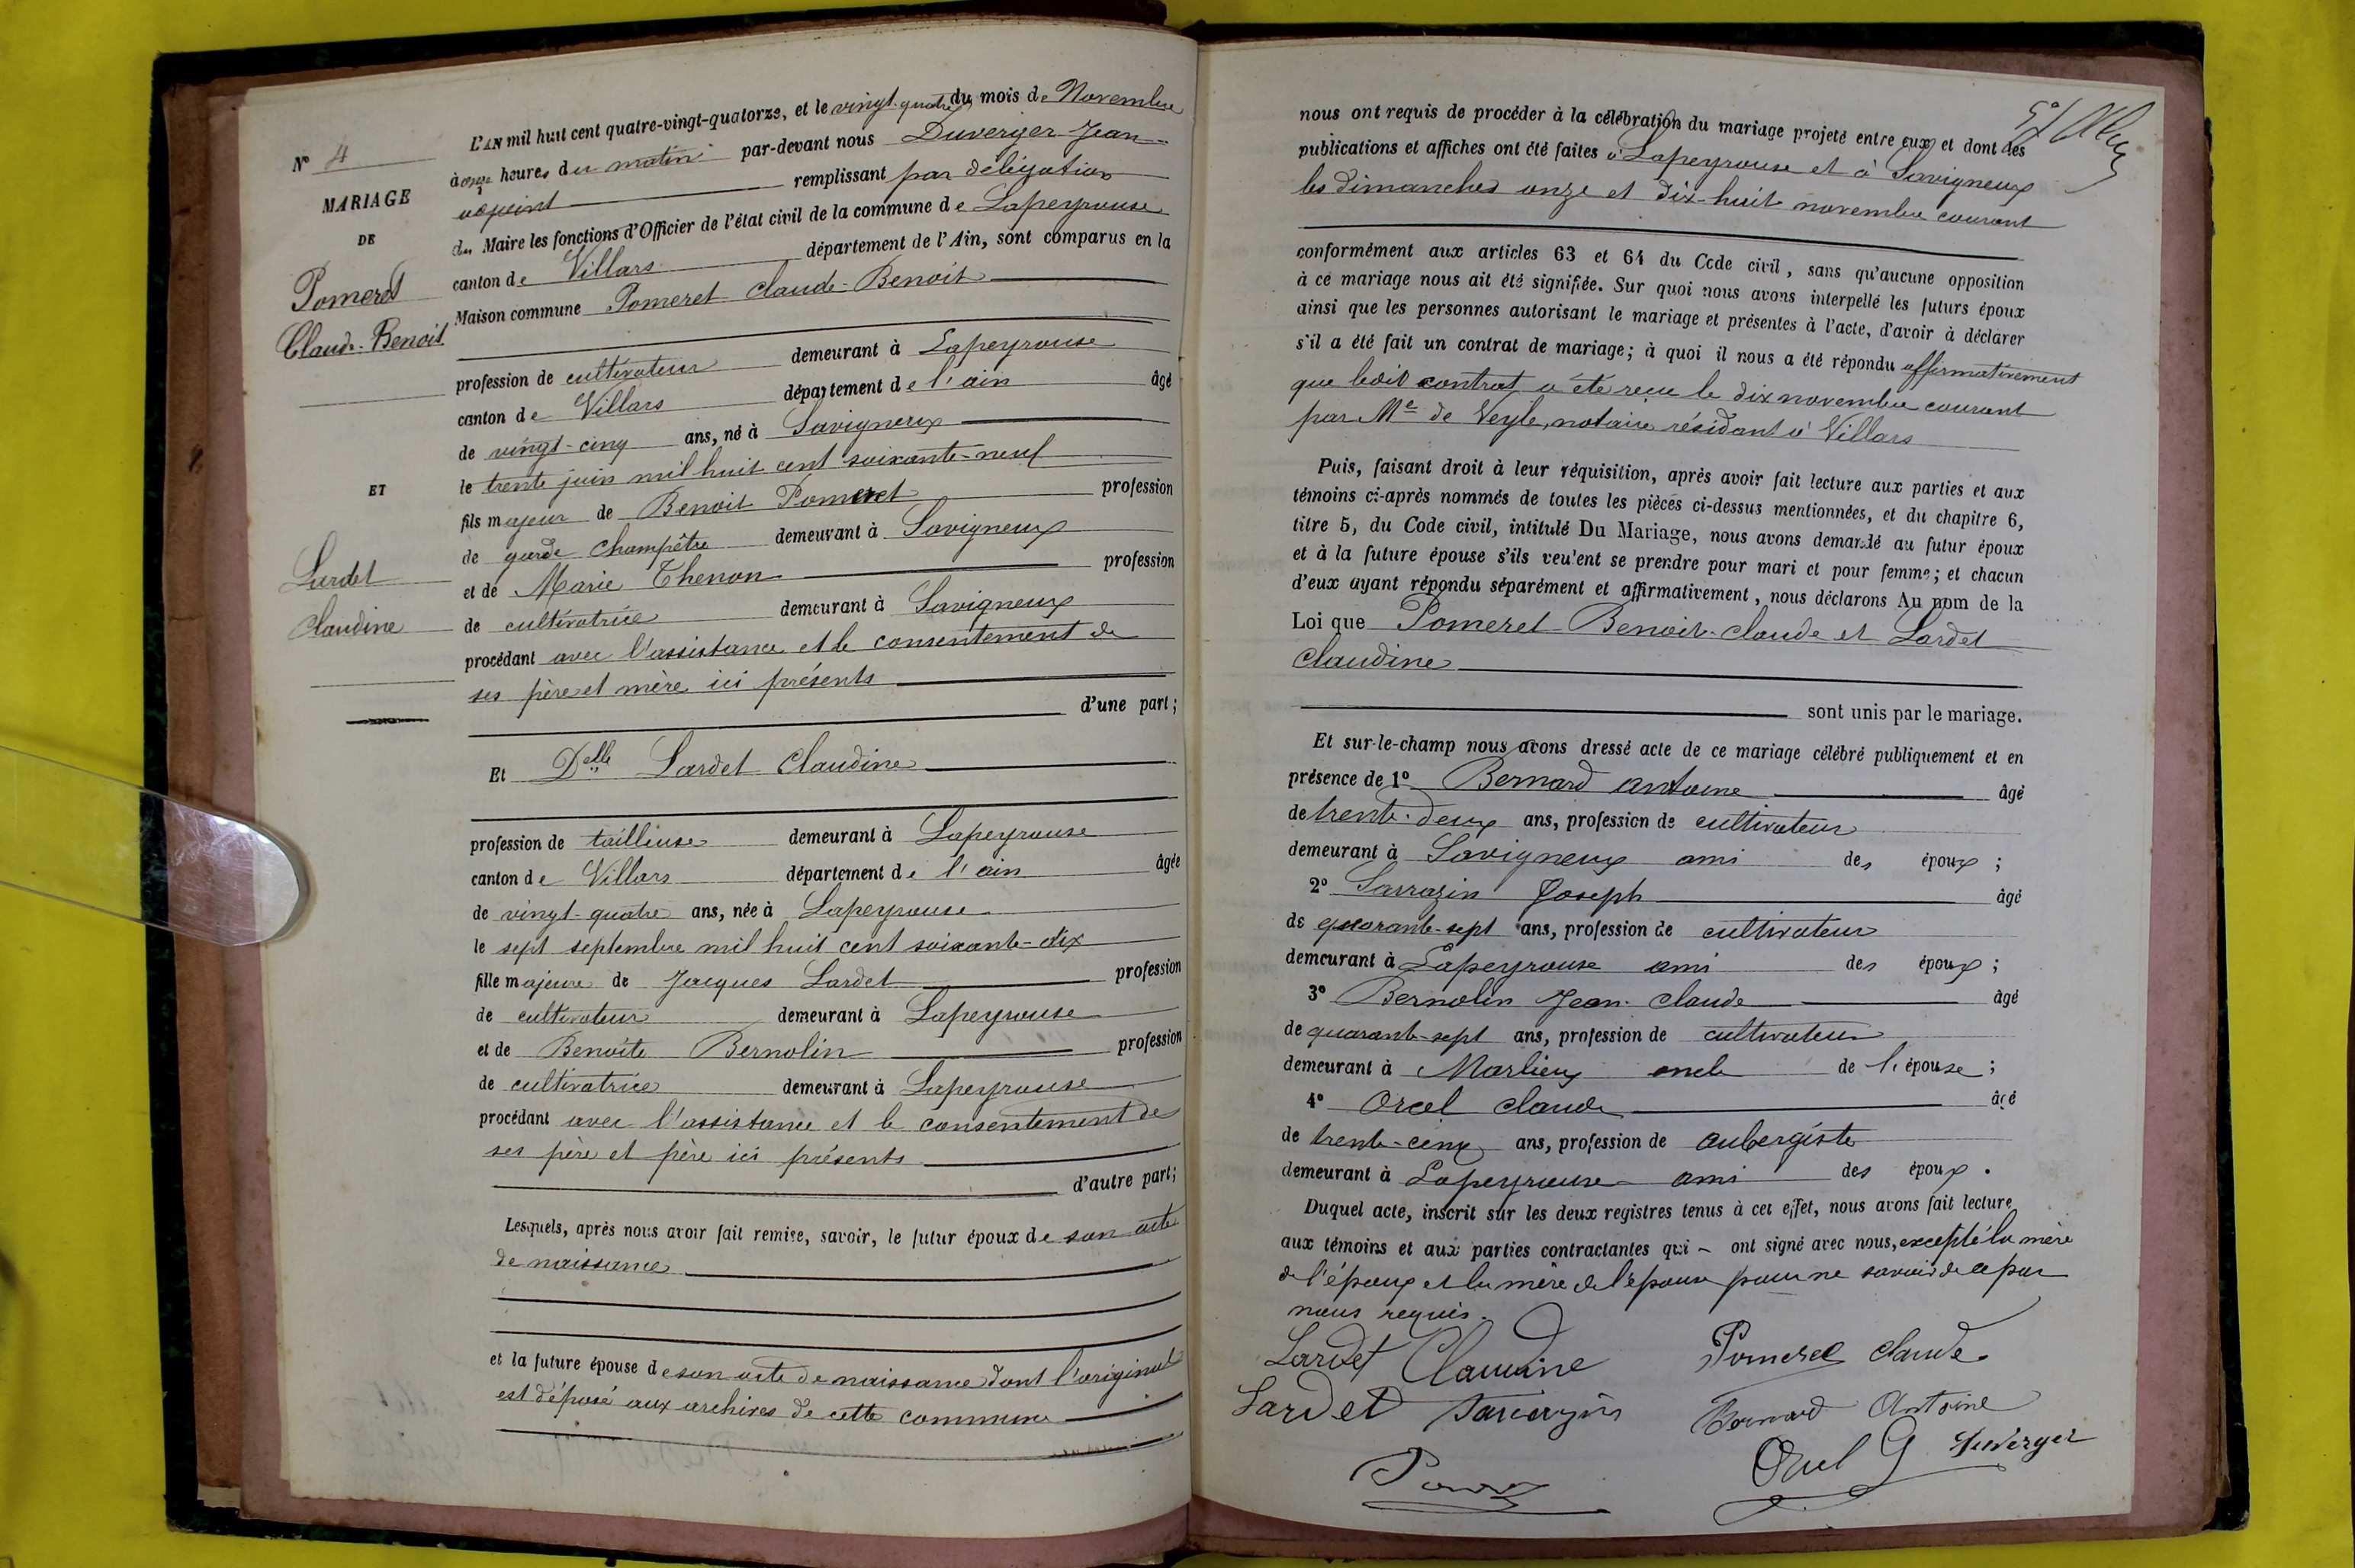 N° 4
MARIAGE
DE
Pomeret
Claude-Benoit
ET
Lardet
Claudine
L'AN mil huit cent quatre-vingt-quatorze, et le vingt-quatre du mois de Novembre
à onze heures du matin par-devant nous Duverger Jean
adjoint remplissant par délégation
du Maire les fonctions d'Officier de l'état civil de la commune de Lapeyrouse
canton de Villars département de l'Ain, sont comparus en la
Maison commune Pomeret Claude-Benoit
profession de cultivateur demeurant à Lapeyrouse
canton de Villars département de l'ain âgé
de vingt-cinq ans, né à Savigneux
le trente juin mil huit cent soixante-neuf
fils majeur de Benoit Pomeret profession
de garde champêtre demeurant à Savigneux
et de Marie Thenon profession
de cultivatrice demeurant à Savigneux
procédant avec l'assistance et le consentement de
ses père et mère ici présents
d'une part;
Et Delle Lardet Claudine
profession de tailleuse demeurant à Lapeyrouse
canton de Villars département de l'ain âgée
de vingt-quatre ans, née à Lapeyrouse
le sept septembre mil huit cent soixante-dix
fille majeure de Jacques Lardet profession
de cultivateur demeurant à Lapeyrouse
et de Benoite Bernolin profession
de cultivatrice demeurant à Lapeyrouse
procédant avec l'assistance et le consentement de
ses père et père ici présents
d'autre part;
Lesquels, après nous avoir fait remise, savoir, le futur époux de son acte
de naissance
et la future épouse de son acte de naissance dont l'original
est déposé aux archives de cette commune
nous ont requis de procéder à la célébration du mariage projeté entre eux et dont les
publications et affiches ont été faites à Lapeyrouse et à Savigneux
les dimanches onze et dix-huit novembre courant
conformément aux articles 63 et 64 du Code civil, sans qu'aucune opposition
à ce mariage nous ait été signifiée. Sur quoi nous avons interpellé les futurs époux
ainsi que les personnes autorisant le mariage et présentes à l'acte, d'avoir à déclarer
s'il a été fait un contrat de mariage; à quoi il nous a été répondu affirmativement
que ledit contrat a été reçu le dix novembre courant
par Me de Veyle, notaire résidant à Villars
Puis, faisant droit à leur réquisition, après avoir fait lecture aux parties et aux
témoins ci-après nommés de toutes les pièces ci-dessus mentionnées, et du chapitre 6,
titre 5, du Code civil, intitulé Du Mariage, nous avons demandé au futur époux
et à la future épouse s'ils veulent se prendre pour mari et pour femme; et chacun
d'eux ayant répondu séparément et affirmativement, nous déclarons Au nom de la
Loi que Pomeret Benoit-Claude et Lardet
Claudine
sont unis par le mariage.
Et sur-le-champ nous avons dressé acte de ce mariage célébré publiquement et en
présence de 1° Bernard Antoine âgé
de trente-deux ans, profession de cultivateur
demeurant à Savigneux ami des époux;
2° Sarrazin Joseph âgé
de quarante-sept ans, profession de cultivateur
demeurant à Lapeyrouse ami des époux;
3° Bernolin Jean-Claude âgé
de quarante-sept ans, profession de cultivateur
demeurant à Marlieux oncle de l'épouse;
4° Orcel Claude âgé
de trente-cinq ans, profession de aubergiste
demeurant à Lapeyrouse ami des époux.
Duquel acte, inscrit sur les deux registres tenus à cet effet, nous avons fait lecture
aux témoins et aux parties contractantes qui ont signé avec nous, excepté la mère
de l'époux et la mère de l'épouse pour ne savoir de ce par
nous requis.
Lardet Claudine Pomeret Claude
Lardet Sarrazin Bernard Antoine
Orcel Duverger